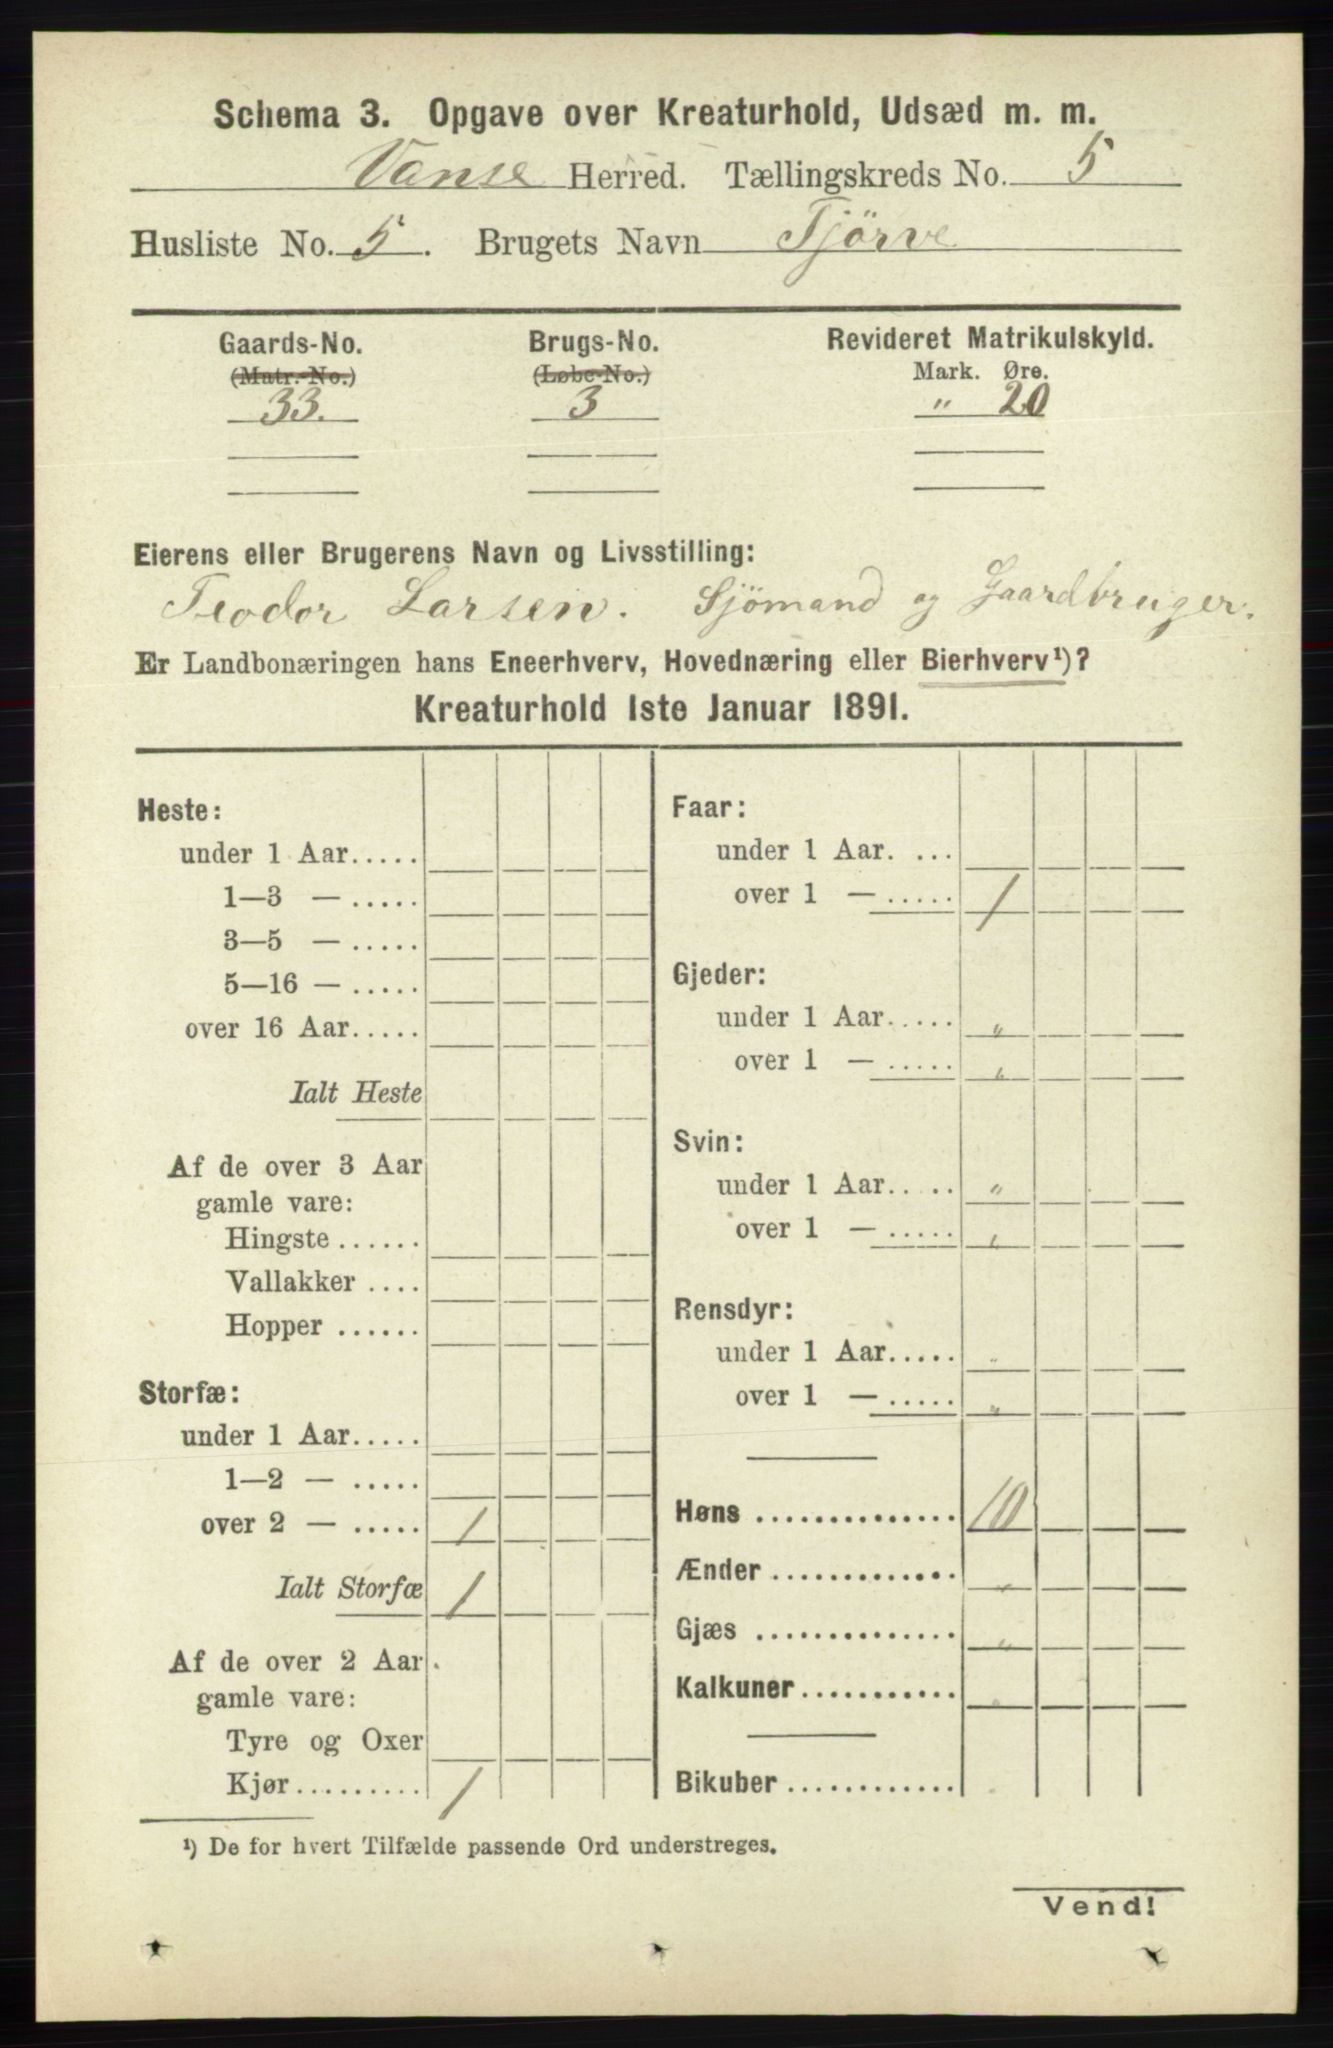 Schema 3. Opgave over Kreaturhold, Udsæd m. m.
Vanse Herred. Tællingskreds No. 5
Husliste No. 5. Brugets Navn Tjörve
Gaards-No. Brugs-No. Revideret Matrikulskyld.
(Matr.-No.) (Løbe-No.) Mark. Øre.
33. 3 " 20
Eierens eller Brugerens Navn og Livsstilling:
Teodor Larsen. Sjömand og Gaardbruger.
Er Landbonæringen hans Eneerhverv, Hovednæring eller Bierhverv¹)?
Kreaturhold 1ste Januar 1891.
Heste:
under 1 Aar.....
1—3 — .....
3—5 — .....
5—16 — .....
over 16 Aar.....
Ialt Heste
Af de over 3 Aar
gamle vare:
Hingste ......
Vallakker ....
Hopper ......
Storfæ:
under 1 Aar.....
1—2 — .....
over 2 — ..... 1
Ialt Storfæ 1
Af de over 2 Aar
gamle vare:
Tyre og Oxer
Kjør......... 1
Faar:
under 1 Aar. ...
over 1 — ..... 1
Gjeder:
under 1 Aar..... "
over 1 — ..... "
Svin:
under 1 Aar..... "
over 1 — ..... "
Rensdyr:
under 1 Aar..... "
over 1 — ..... "
Høns .............. 10
Ænder ............. "
Gjæs .............. "
Kalkuner........... "
Bikuber ............
¹) De for hvert Tilfælde passende Ord understreges.
Vend!